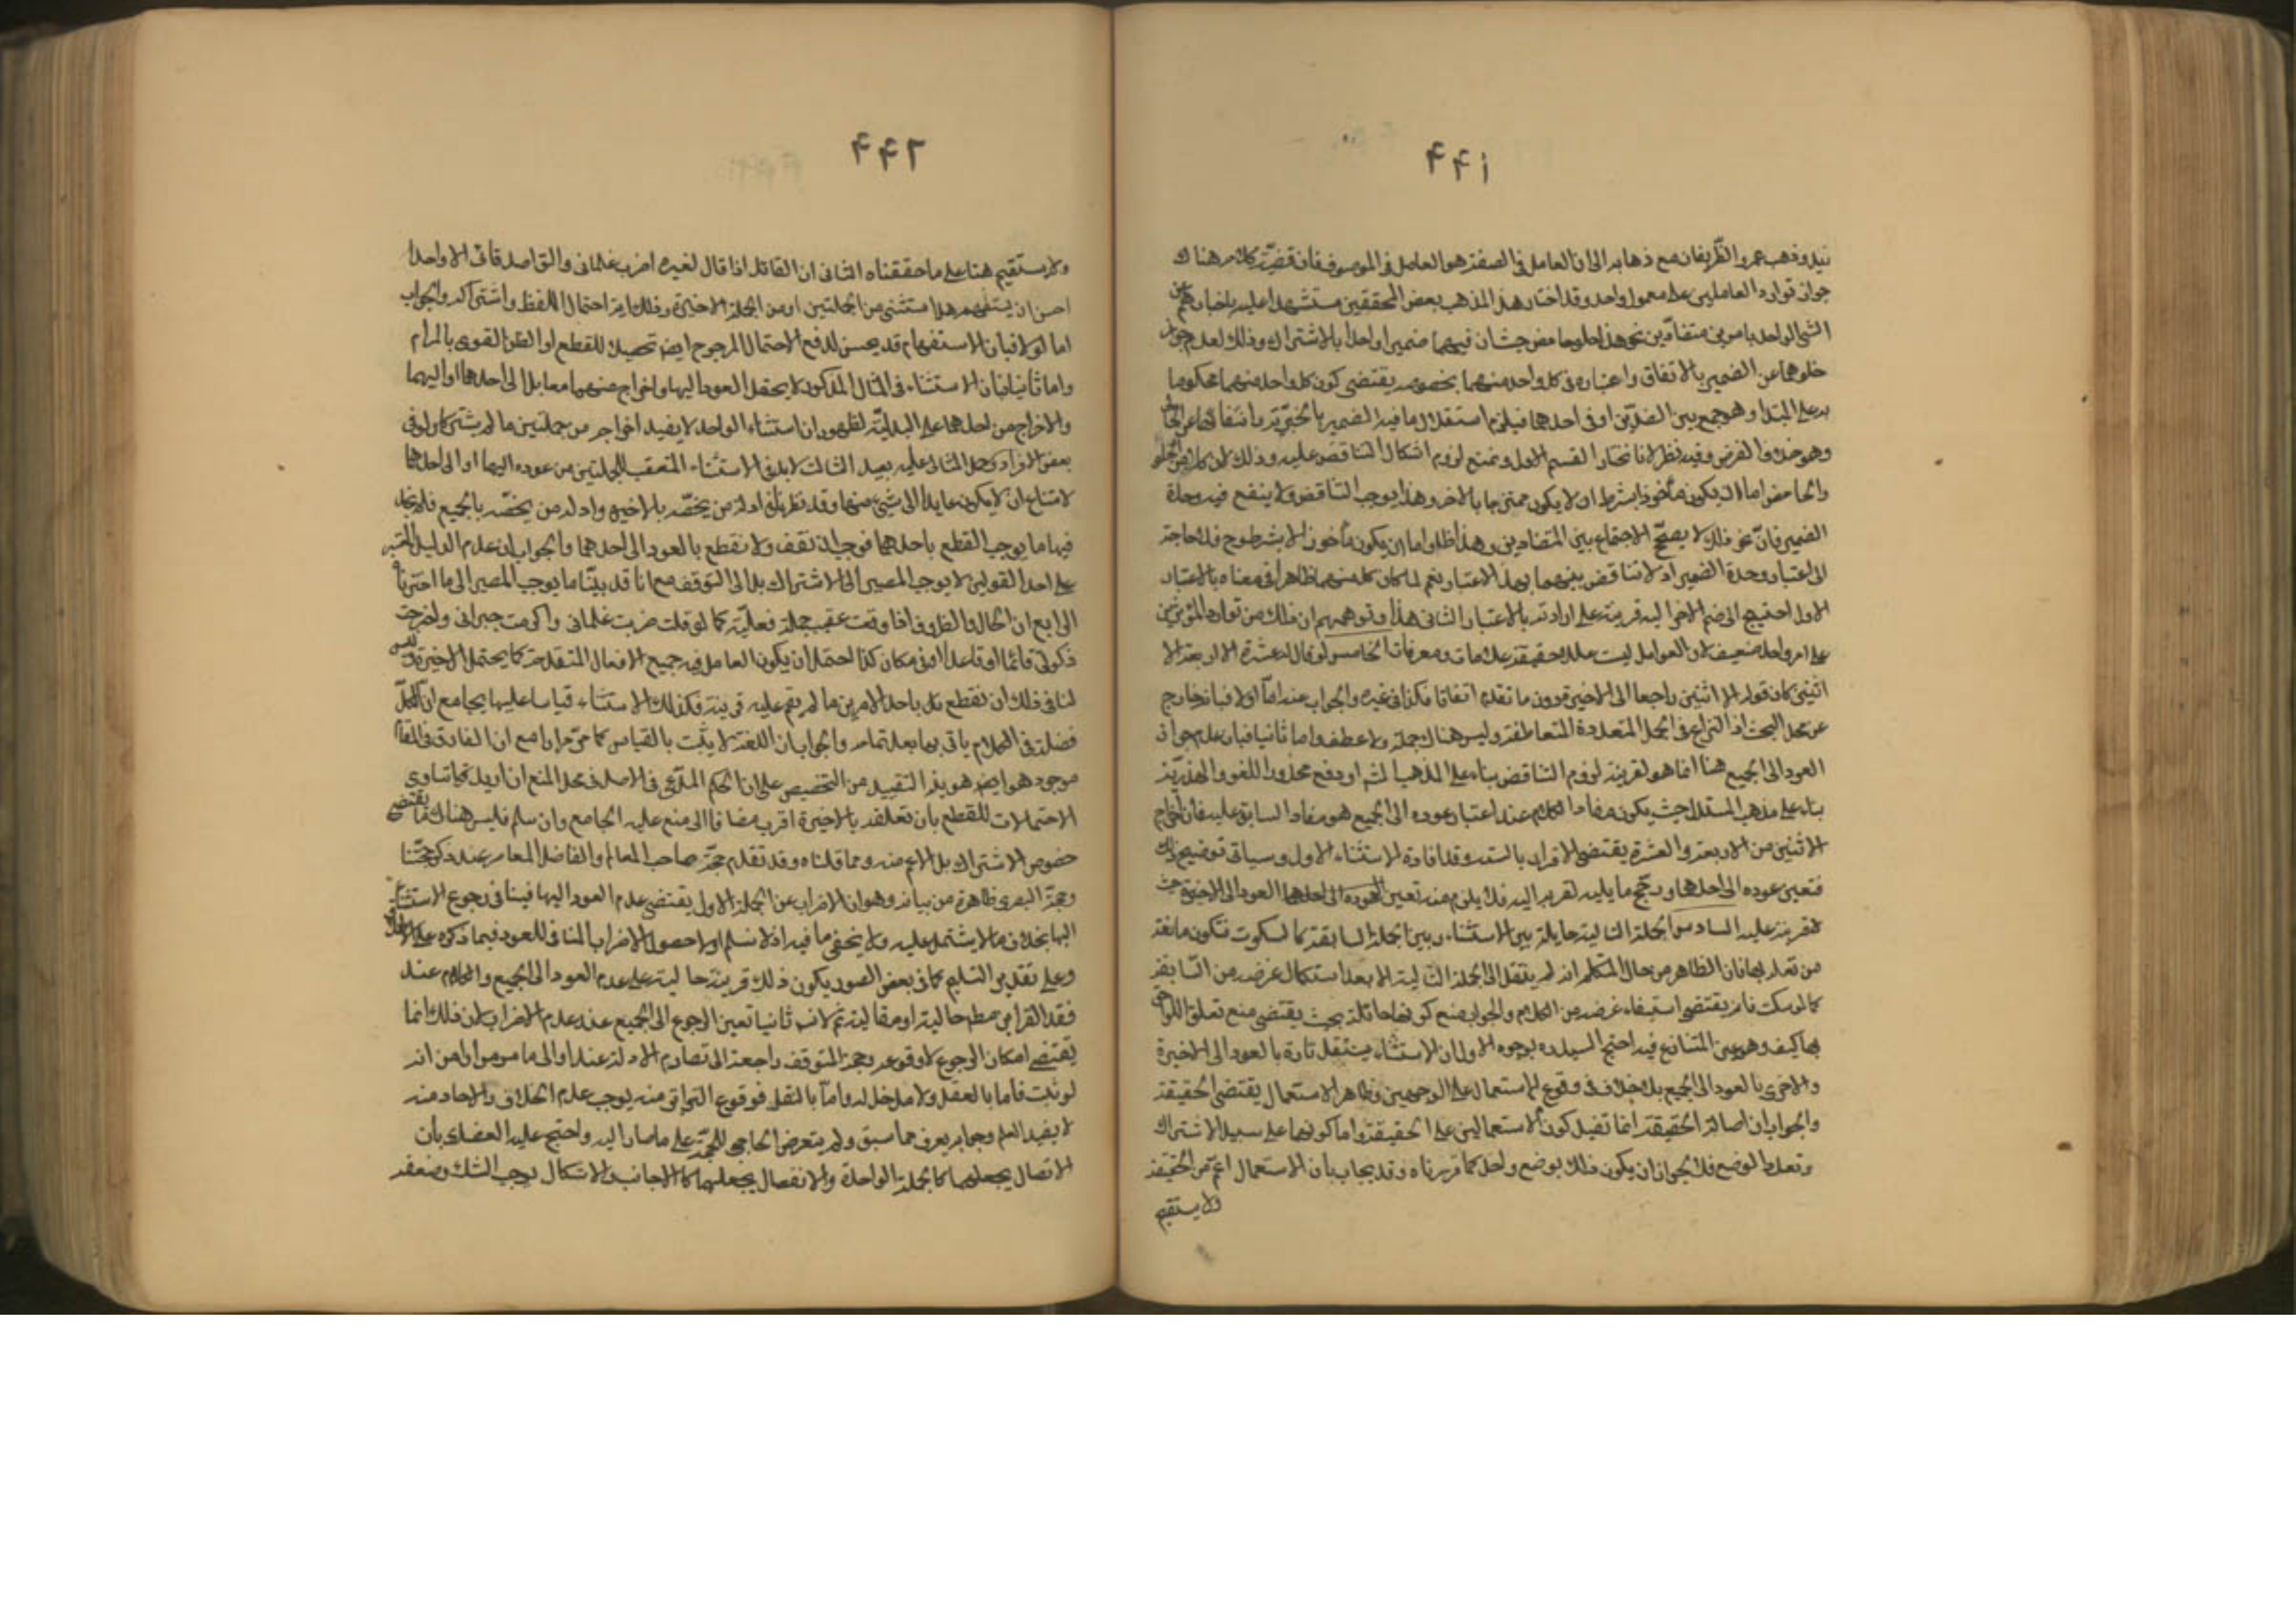 ۴۴۱
زيد وذهب عمرو الظريفان مع ذهابه الى ان العامل فى الصفة هو العامل فى الموصوف فان قضية كلامه هناك
جواز توارد العاملين على معمول واحد وقد اختار هذا المذهب بعض المحققين مستشهدا عليه باخبارهم عن
الشئ الواحد بامرين متضادين نحو هذا حلو حامض حيث ان فيهما ضميرا واحدا بالاشتراك وذلك لعدم جواز
خلوهما عن الضمير بالاتفاق واعتباره فى كل واحد منهما بخصوصه يقتضى كون كل واحد منهما محكوما
به على المبتدا وهو جمع بين الضدين او فى احدهما فيلزم استقلال ما فيه الضمير بالخبرية وانتفائها عن الخالى
وهو خلاف الفرض وفيه نظر لانا نختار القسم الاول ونمنع لزوم اشكال التناقض عليه وذلك لان كلا من الحلو
والحامض اما ان يكون مأخوذا بشرط ان لا يكون ممتزجا بالاخر وهذا يوجب التناقض ولا ينفع فيه وحدة
الضمير فان نحو ذلك لا يصحح الاجتماع بين المتضادين وهذا ظاهر واما ان يكون مأخوذا لا بشرط وح فلا حاجة
الى اعتبار وحدة الضمير اذ لا تناقض بينهما بهذا الاعتبار نعم لما كان كل منهما ظاهرا فى معناه بالاعتبار
الاول احتيج الى ضم الاخر اليه قرينة على ارادته بالاعتبار الثانى هذا وتوهم ان ذلك من توارد المؤثرين
على امر واحد ضعيف لان العوامل ليست عللا حقيقة بل علامات ومعرفات الخامس لو قال له عشرة الا اربعة الا
اثنين كان قوله الا اثنين راجعا الى الاخيرة دون ما تقدم اتفاقا فكذا فى غيره والجواب عنه اما اولا فبانه خارج
عن محل البحث اذ النزاع فى الجمل المتعددة المتعاطفة وليس هناك جملة ولا عطف واما ثانيا فبان عدم جواز
العود الى الجميع هنا انما هو لقرينة لزوم التناقض بناء على المذهب
بناء على مذهب المستدل حيث يكون مفاد الكلام عند اعتبار عوده الى الجميع هو مفاد السابق عليه فان اخراج
الاثنين من الاربعة والعشرة يقتضى الاقرار بالستة وقد افاده الاستثناء الاول وسياتى توضيح ذلك
فتعين عوده الى احدهما ويرجح ما يليه لقربه اليه فلا يلزم منه تعين العود الى الاخيرة حيث
لا قرينة عليه السادس الجملة الثانية حايلة بين الاستثناء وبين الجملة السابقة كالسكوت فتكون مانعة
من تعلقه بها فان الظاهر من حال المتكلم انه لم ينتقل الى الجملة الثانية الا بعد استكمال غرضه من السابقة
كما لو سكت فانه يقتضى استيفاء غرضه من الكلام والجواب منع كونها حائلة بحيث يقتضى منع تعلق اللواحق
بها كيف وهو عين المتنازع فيه احتج السيد ره بوجوه الاول ان الاستثناء يستعمل تارة بالعود الى الاخيرة
والاخرى بالعود الى الجميع بلا خلاف فى وقوع الاستعمال على الوجهين وظاهر الاستعمال يقتضى الحقيقة
والجواب ان اصالة الحقيقة انما تفيد كون الاستعمالين على الحقيقة واما كونهما على سبيل الاشتراك
وتعدد الوضع فلا لجواز ان يكون ذلك بوضع واحد كما قررناه وقد يجاب بان الاستعمال اعم من الحقيقة
ولا يستقيم
۴۴۲
ولا يستقيم هنا على ما حققناه الثانى ان القائل اذا قال لغيره اضرب غلمانى والق اصدقائى الا واحدا
احسن ان يستفهم هل استثنى من الجملتين او من الجملة الاخيرة وذلك اية احتمال اللفظ واشتراكه والجواب
اما اولا فبان الاستفهام قد يحسن لدفع الاحتمال المرجوح ايض تحصيلا للقطع او الظن القوى بالمرام
واما ثانيا فبان الاستثناء فى المثال المذكور لا يحتمل العود اليهما واخراج منهما معا بل الى احدهما او اليهما
والاخراج من احدهما على البدلية لظهور ان استثناء الواحد لا يفيد اخراجه من جملتين ما لم يشتركا ولو فى
بعض الافراد وحمل المثال عليه بعيد الثالث لابد فى الاستثناء المتعقب للجملتين من عوده اليهما او الى احدهما
لامتناع ان لا يكون عايدا الى شئ منهما وقد نظرنا فى ادلة من يخصه بالاخيرة وادلة من يخصه بالجميع فلم نجد
فيها ما يوجب القطع باحدهما فوجب ان نقف ولا نقطع بالعود الى احدهما والجواب ان عدم الدليل المعتبر
على احد القولين لا يوجب المصير الى الاشتراك بل الى التوقف مع انا قد بينا ما يوجب المصير الى ما اخترناه
الرابع ان الحال والظروف اذا وقعت عقيب جملة فعلية كما لو قلت ضربت غلمانى واكرمت جيرانى واخرجت
زكوتى قائما او قاعدا او فى مكان كذا احتمل ان يكون العامل فيه جميع الافعال المتقدمة كما يحتمل الاخيرة وليس
لنا فى ذلك ان نقطع باحد الامرين ما لم يقم عليه قرينة فكذلك الاستثناء قياسا عليها بجامع ان الكل
فضلة فى الكلام ياتى بها بعد تمامه والجواب ان اللغة لا يثبت بالقياس كما مر مرارا مع ان الفارق فى المقام
موجود هو ايض هو بقرب التقييد من التخصيص على ان الحكم المدعى فى الاصل فى محل المنع ان اريد كما تساوى
الاحتمالات للقطع بان تعلقه بالاخيرة اقرب مضافا الى منع علية الجامع وان سلم فليس هناك ما يقتضى
خصوص الاشتراك بل الاعم منه ومما قلناه وقد تقدم حجة صاحب المعالم والفاضل المعاصر عند ذكر حجتنا
وحجة البصرى ظاهرة من بيانه وهو ان الاضراب عن الجملة الاولى يقتضى عدم العود اليها فينافى رجوع الاستثناء
اليها بخلاف ما لا يشتمل عليه ولا يخفى ما فيه اذ لا نسلم اولا حصول الاضراب المنافى للعود فيما ذكره على الاطلاق
وعلى تقدير التسليم كما فى بعض الصور يكون ذلك قرينة حالية على عدم العود الى الجميع والكلام عند
فقد القراين مطلقا حالية او مقالية ثم لا نسلم ثانيا تعين الرجوع الى الجميع عند عدم الاضراب لان ذلك انما
يقتضى امكان الرجوع لا وقوعه وحجة المتوقف راجعة الى تصادم الادلة عنده او الى ما مر مرارا من انه
لو ثبت فاما بالعقل ولا مدخل له واما بالنقل فوقوع التواتر منه يوجب عدم الخلاف والاحاد منه
لا يفيد العلم وجوابه يعرف مما سبق ولم يتعرض الحاجبى للحجة على ما صار اليه واحتج عليه العضدى بان
الاتصال يجعلهما كالجملة الواحدة والانفصال يجعلهما كالاجانب والاشكال يوجب الشك وضعفه